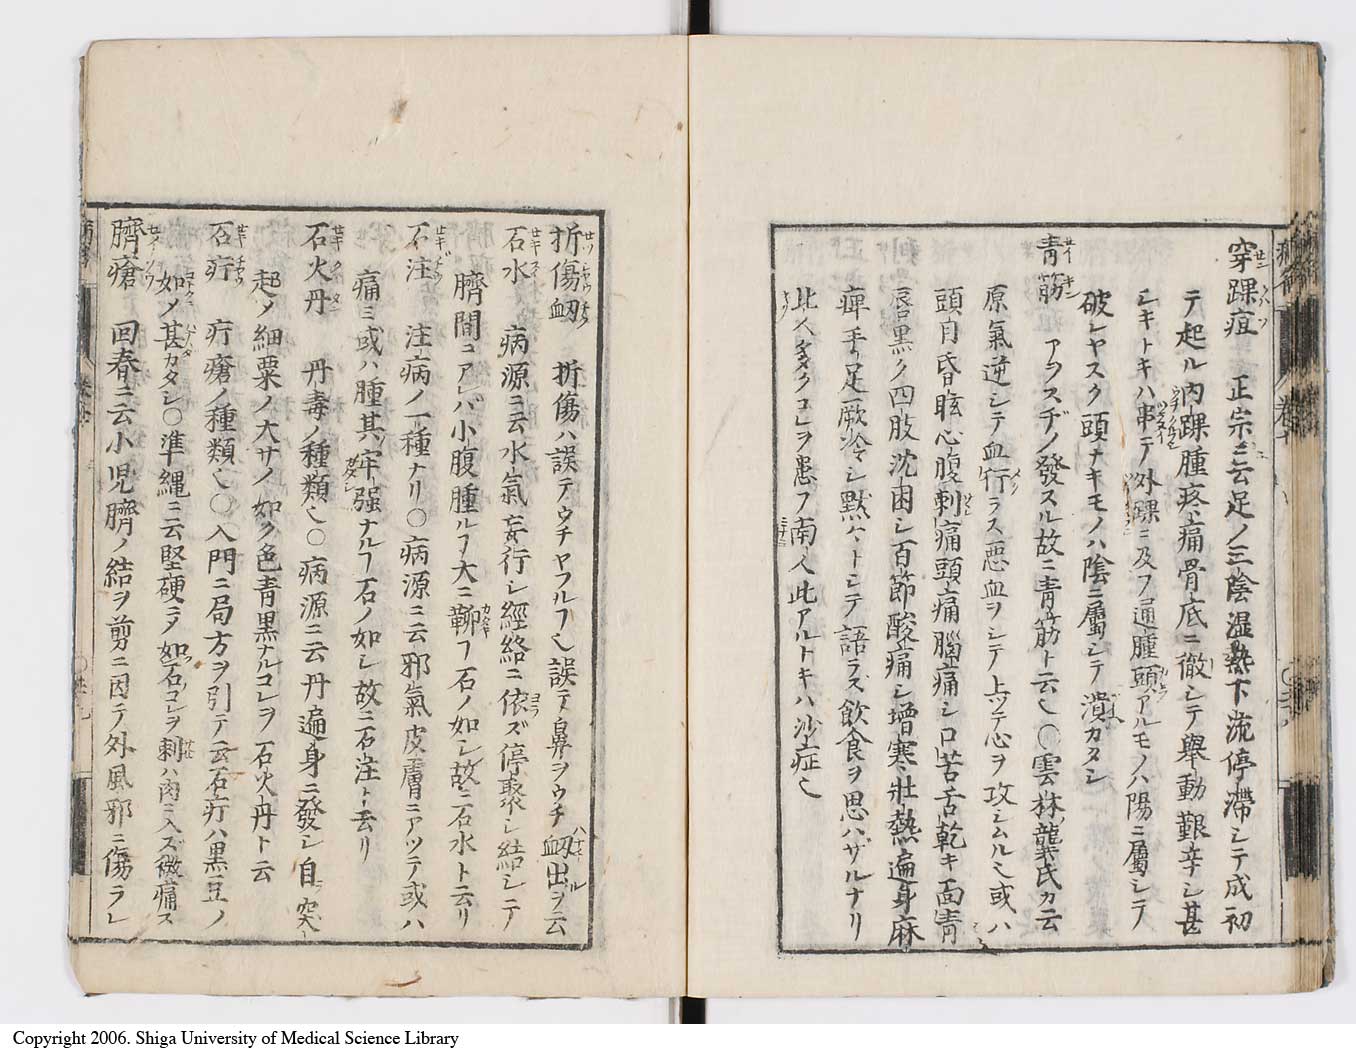 穿踝疽 正宗ニ云足ノ三陰湿熱下流停滞シテ成初
テ起ル内踝腫疼痛骨底ニ徹シテ舉動艱辛シ甚
シキトキハ串テ外踝ニ及フ通腫頭アルモノハ陽ニ屬シテ
破レヤスク頭ナキモノハ陰ニ屬シテ潰カタシ
青筋 アヲスヂノ發スル故ニ青筋ト云也〇雲林龔氏カ云
原氣逆シテ血行ラス悪血ヲシテ上ツテ心ヲ攻シムル也或ハ
頭自昏眩心腹刺痛頭痛腦痛シ口苦舌乾キ面青
唇黒ク四肢沈困シ百節酸痛シ增寒壯熱遍身麻
痺手足厥冷シ黙々トシテ語ラズ飲食ヲ思ハザルナリ
北人多クコレヲ患フ南人此アルトキハ沙症也
折傷衂 折傷ハ誤テウチヤフルフ也誤テ鼻ヲウチ衂出ヲ云
石水 病源ニ云水氣妄行シ經絡ニ依ズ停聚シ結シテ
臍間ニアレバ小腹腫ルフ大ニ鞕フ石ノ如シ故ニ石水ト云リ
石注 注病ノ一種ナリ〇病源ニ云邪氣皮膚ニアツテ或ハ
痛ミ或ハ腫其牢强ナルフ石ノ如シ故ニ石注ト云リ
石火丹 丹毒ノ種類也〇病源ニ云丹遍身ニ發シ自突
起メ細粟ノ大サノ如ク色青黒ナルコレヲ石火丹ト云
石疔 疔瘡ノ種類也〇入門ニ局方ヲ引テ云石疔ハ黒豆ノ
如メ甚カタシ〇準繩ニ云堅硬ニメ如石コレヲ刺ハ肉ニ入ズ微痛ス
臍瘡 回春ニ云小児臍ノ結ヲ剪ニ因テ外風邪ニ傷ラレ
Copyright 2006. Shiga University of Medical Science Library